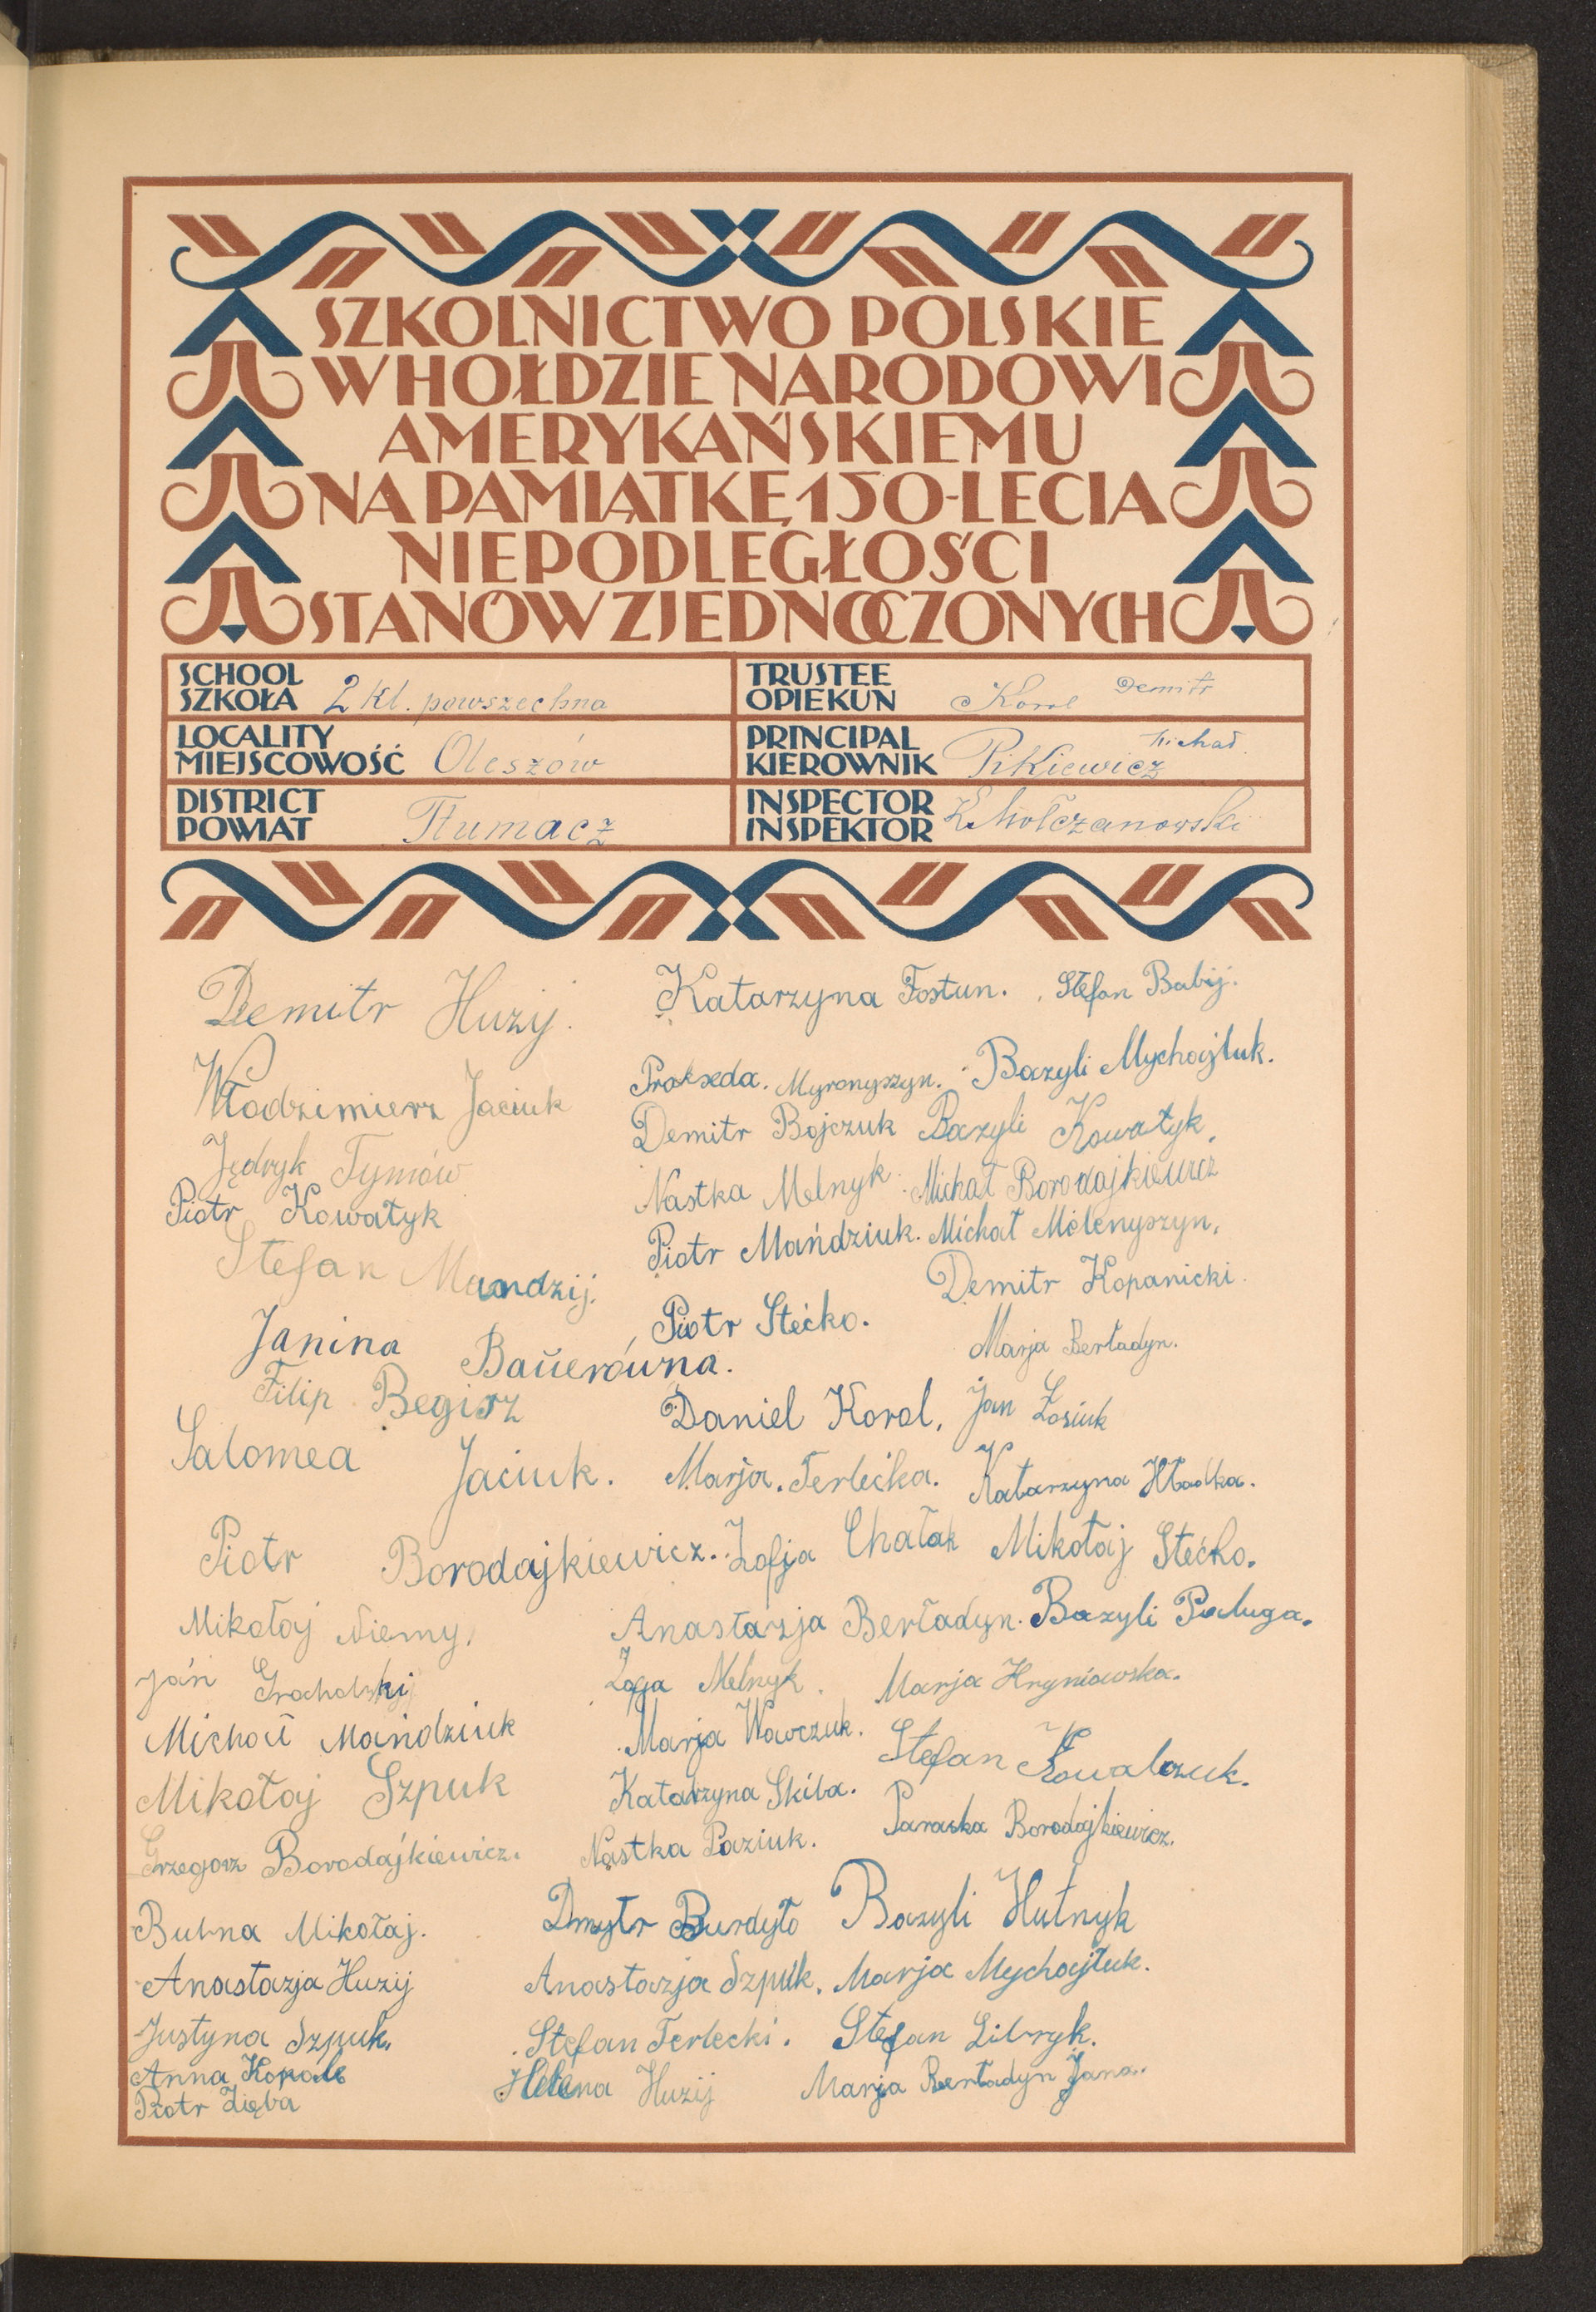 SZKOLNICTWO POLSKIE
W HOŁDZIE NARODOWI
AMERYKAŃSKIEMU
NA PAMIĄTKĘ 150-LECIA
NIEPODLEGŁOŚCI
STANÓW ZJEDNOCZONYCH
SCHOOL
SZKOŁA 2 kl. powszechna
TRUSTEE
OPIEKUN Korol Demitr
LOCALITY
MIEJSCOWOŚĆ Oleszów
PRINCIPAL
KIEROWNIK Pikiewicz Michał
DISTRICT
POWIAT Tłumacz
INSPECTOR
INSPEKTOR Mołczanowski
Demitr Huzij.
Włodzimierz Jaciuk
Jędryk Tymów
Piotr Kowałyk
Stefan Mandzij.
Janina Bauerówna.
Filip Begisz
Salomea Jaciuk.
Piotr Borodajkiewicz.
Mikołaj Niemy.
Ján Grocholski
Michał Mańdziuk
Mikołaj Szpuk
Grzegorz Borodajkiewicz.
Bubna Mikołaj.
Anastazja Huzij
Justyna Szpuk.
Anna Kopále
Piotr Zięba
Katarzyna Fostun. Stefan Babij.
Prakseda. Myronyszyn. Bazyli Mychajluk.
Demitr Bojczuk Bazyli Kowałyk.
Nastka Melnyk. Michał Borodajkiewicz
Piotr Mańdziuk. Michał Melenyszyn.
Demitr Kopanicki.
Piotr Stećko.
Marja Berładyn.
Daniel Korol. Jan Łosiuk
Marja. Terlecka. Katarzyna Hładka.
Zofja Chałak Mikołaj Stećko.
Anastazja Berładyn. Bazyli Paluga.
Zofja Melnyk. Marja Hryniowska.
Marja Wawczuk.
Stefan Kowalczuk.
Katarzyna Skiba.
Paraska Borodajkiewicz.
Nastka Paziuk.
Dmytr Burdyło Bazyli Hutnyk
Anastazja Szpuk. Marja Mychajluk.
Stefan Terlecki. Stefan Libryk.
Helena Huzij Marja Berładyn Jana.